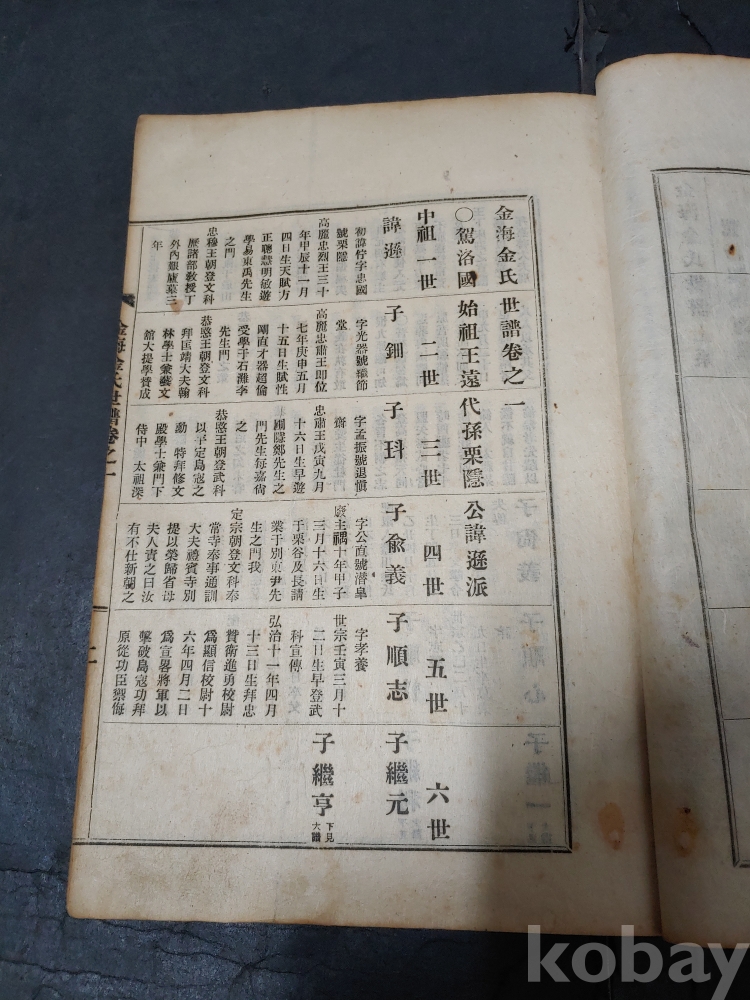 金海金氏世譜卷之一
○駕洛國始祖王遠代孫栗隱公諱遜派
中祖一世
二世
三世
四世
五世
六世
諱遜
初諱佇字忠國
號栗隱
高麗忠烈王三十
年甲辰十一月
四日生天賦方
正聰慧明敏遊
學易東禹先生
之門
忠穆王朝登文科
歷諸部敎授丁
外內艱廬墓三
年
子鈿
字光器號殲節
堂
高麗忠肅王即位
七年庚申五月
十五日生賦性
剛直才器超倫
受學于石灘李
先生門之
恭愍王朝登文科
拜匡靖大夫翰
林學士兼藝文
館大提學贊成
子科
字孟振號退愼
齋
忠肅王戊寅九月
十六日生早遊
圃隱鄭先生之
門先生每嘉尙
之
恭愍王朝登武科
以平定島寇之
勳特拜修文
殿學士兼門下
侍中太祖深
子兪義
字公直號潜皐
廢主禑十年甲子
三月十六日生
于栗谷及長請
業于別東尹先
生之門我
定宗朝登文科奉
常寺奉事通訓
大夫禮賓寺別
提以榮歸省母
夫人責之曰汝
有不仕新朝之
子順志
字孝養
世宗壬寅三月十
二日生早登武
科宣傳
弘治十一年四月
十三日生拜忠
贊衛進勇校尉
爲顯信校尉十
六年四月二日
爲宣畧將軍以
擊破島寇功拜
原從功臣禦侮
子繼元
子繼亨
下見
大譜
金海金氏世譜卷之一
一
kobay